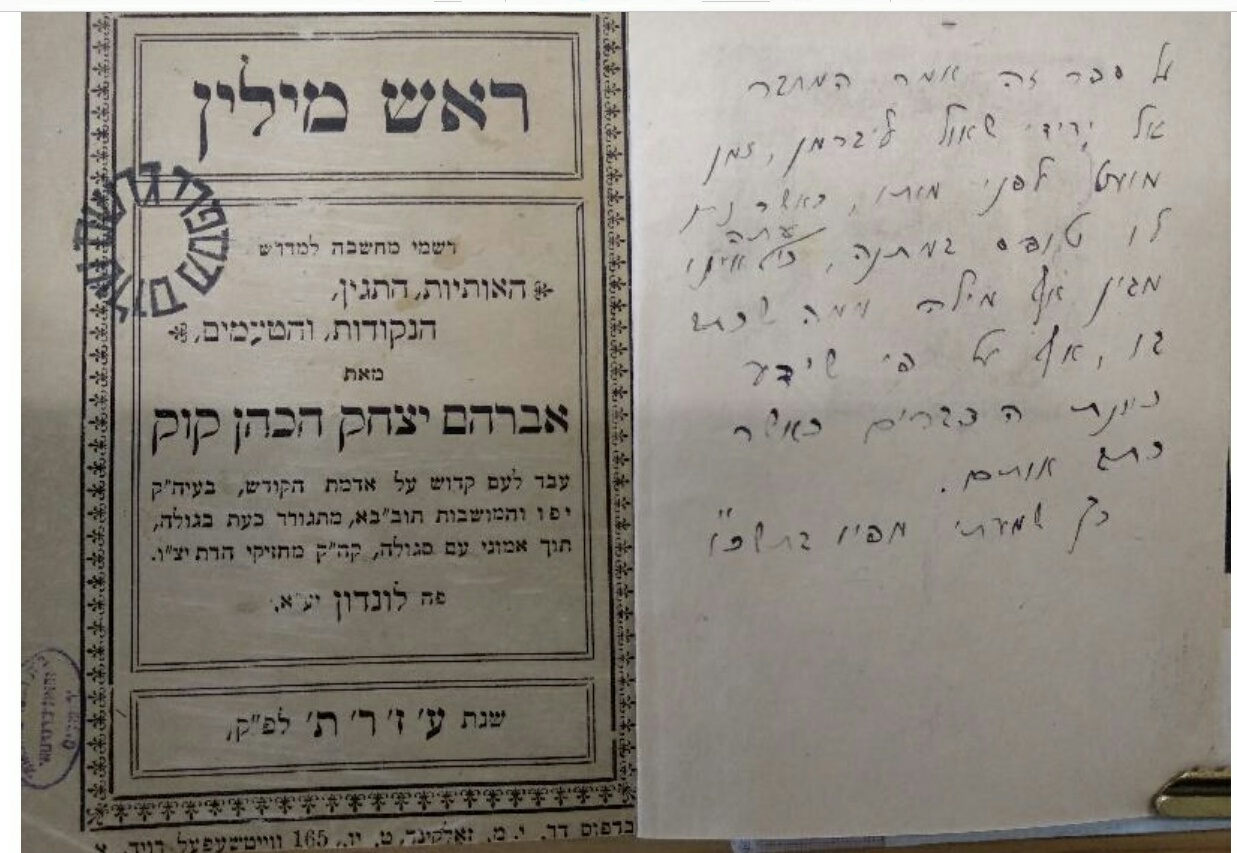 על ספר זה אמר המחבר
אל ידידי שאול ליברמן, זמן
מועט לפני מותו, כאשר נתן
לו טופס במתנה, כי עתה אינו
מבין אף מילה ממה שכתב
בו, אף על פי שידע
כוונת הדברים כאשר
כתב אותם.
כך שמעתי מפיו בתשכ"ו
ראש מילין
רשמי מחשבה למדרש
האותיות, התגין,
הנקודות, והטעמים,
מאת
אברהם יצחק הכהן קוק
עבד לעם קדוש על אדמת הקודש, בעיה"ק
יפו והמושבות תוב"בא, מתגורר כעת בגולה,
תוך אמוני עם סגולה, קה"ק מחזיקי הדת יצ"ו.
פה לונדון יע"א.
שנת ע' ז' ר' ת' לפ"ק,
בדפוס דר. י. מ. זאלקינד, ט. יו., 165 ווייטשעפעל רויד,